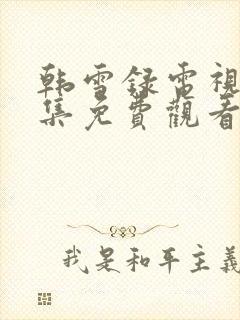 韩雪録電視
集免費觀看
我是和平主義